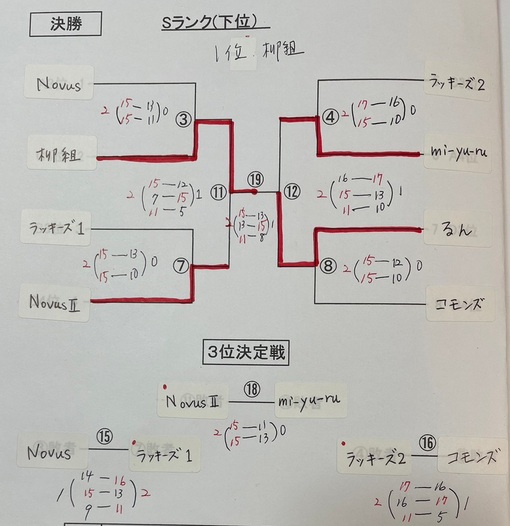 決勝
Sランク(下位)
1位 柳組
Novus
ラッキーズ2
2 (15 — 13) 0
15 — 11
③
④
2 (17 — 16) 0
15 — 10
柳組
mi-yu-ru
2 (15 — 12) 1
7 — 15
11 — 5
⑪
⑲
⑫
(16 — 17) 1
15 — 13
11 — 10
2 (15 — 13) 1
13 — 15
11 — 8
ラッキーズ1
るん
2 (15 — 13) 0
15 — 10
⑦
⑧
2 (15 — 12) 0
15 — 10
NovusⅡ
コモンズ
3位決定戦
NovusⅡ ⑱ mi-yu-ru
2 (15 — 11) 0
15 — 13
Novus ⑮ ラッキーズ1
1 (14 — 16) 2
15 — 13
9 — 11
ラッキーズ2 ⑯ コモンズ
2 (17 — 16) 1
16 — 17
11 — 5